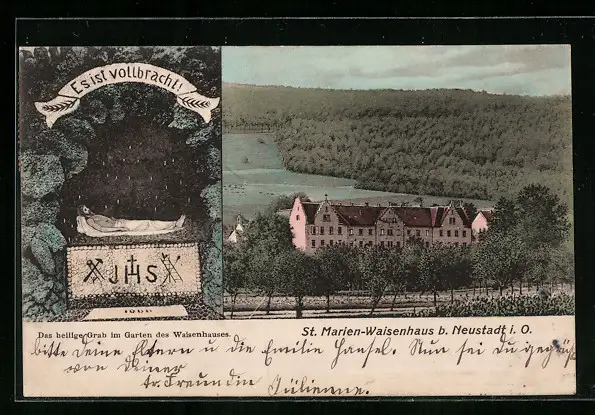 Es ist vollbracht!
JHS
Das heilige Grab im Garten des Waisenhauses.
St. Marien-Waisenhaus b. Neustadt i. O.
bitte Deine Eltern u die Emilie Hansel. Nun sei Du gegrüßt
von Deiner
tr. Freundin Julienne.